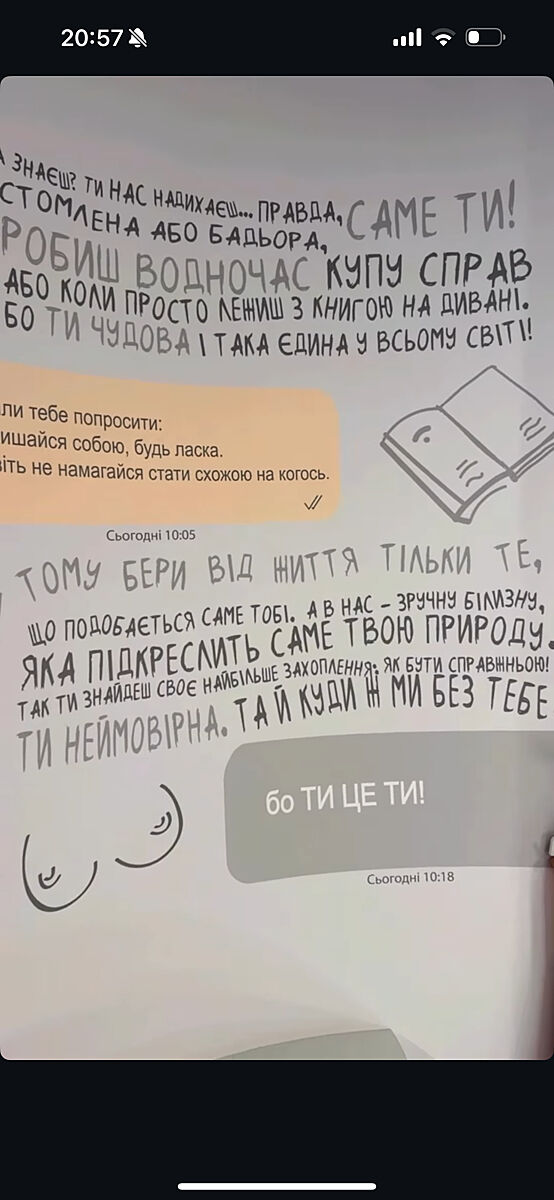 20:57
А ЗНАЄШ? ТИ НАС НАДИХАЄШ... ПРАВДА, САМЕ ТИ!
СТОМЛЕНА АБО БАДЬОРА,
РОБИШ ВОДНОЧАС КУПУ СПРАВ
АБО КОЛИ ПРОСТО ЛЕЖИШ З КНИГОЮ НА ДИВАНІ.
БО ТИ ЧУДОВА І ТАКА ЄДИНА У ВСЬОМУ СВІТІ!
ли тебе попросити:
ишайся собою, будь ласка.
віть не намагайся стати схожою на когось.
Сьогодні 10:05
ТОМУ БЕРИ ВІД ЖИТТЯ ТІЛЬКИ ТЕ,
ЩО ПОДОБАЄТЬСЯ САМЕ ТОБІ. А В НАС – ЗРУЧНУ БІЛИЗНУ,
ЯКА ПІДКРЕСЛИТЬ САМЕ ТВОЮ ПРИРОДУ.
ТАК ТИ ЗНАЙДЕШ СВОЄ НАЙБІЛЬШЕ ЗАХОПЛЕННЯ: ЯК БУТИ СПРАВЖНЬОЮ!
ТИ НЕЙМОВІРНА. ТА Й КУДИ Ж МИ БЕЗ ТЕБЕ
бо ТИ ЦЕ ТИ!
Сьогодні 10:18